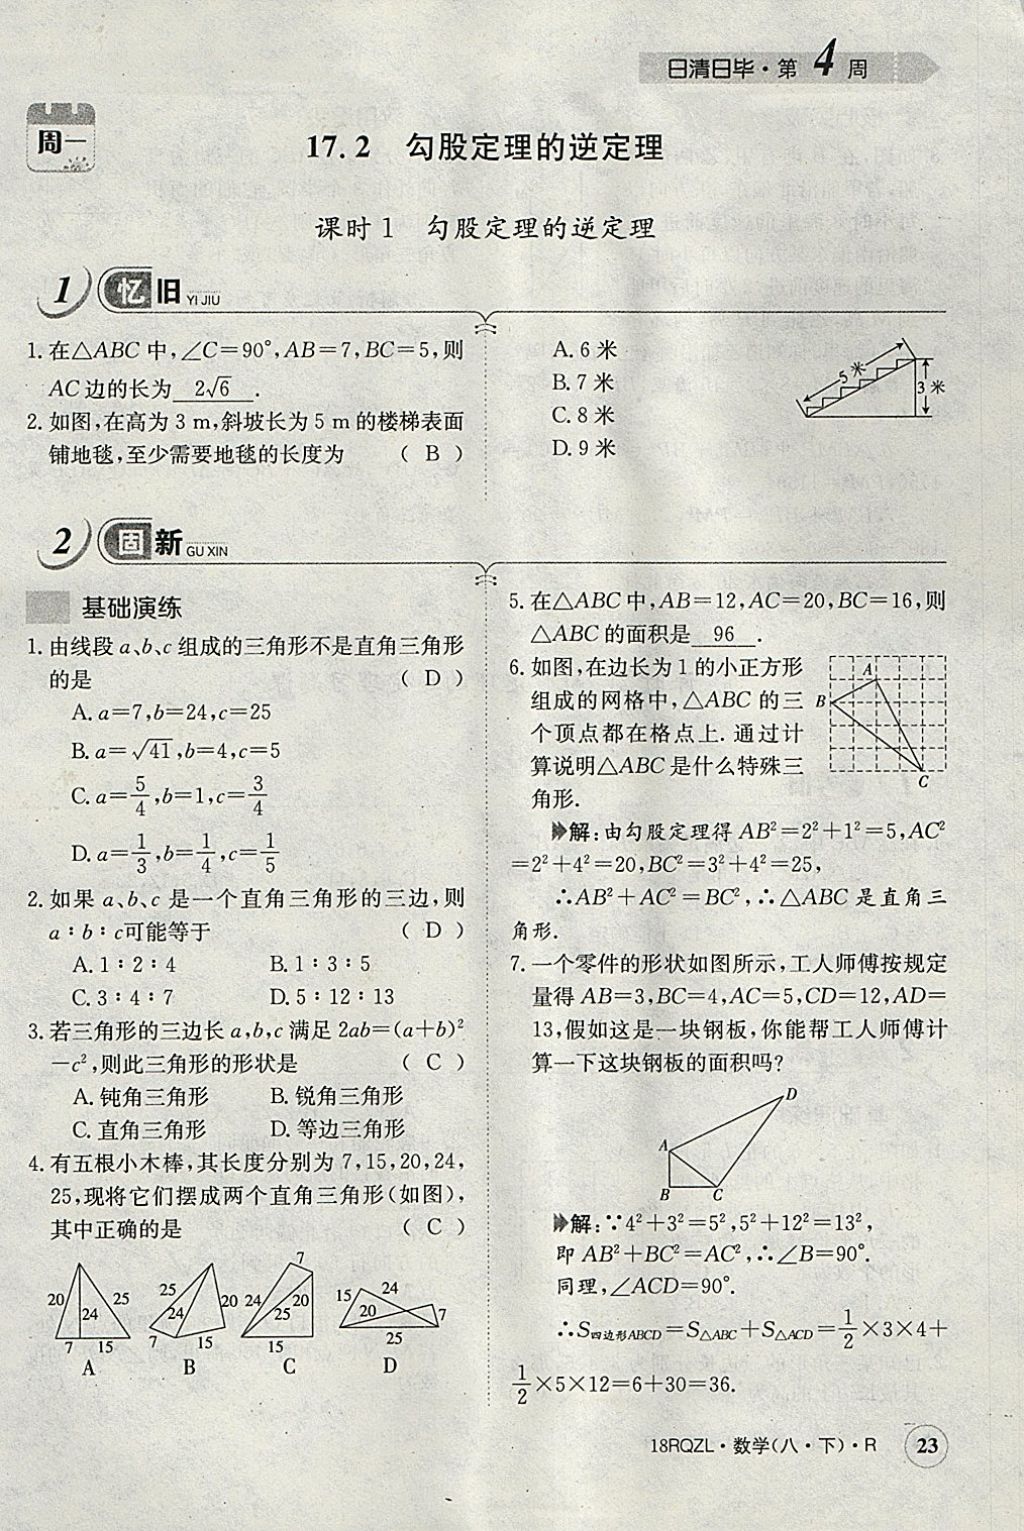 日清日毕·第4周
周一
17.2 勾股定理的逆定理
课时1 勾股定理的逆定理
1 忆旧 YI JIU
1.在△ABC中,∠C=90°,AB=7,BC=5,则
AC边的长为 2√6 .
2.如图,在高为3 m,斜坡长为5 m的楼梯表面
铺地毯,至少需要地毯的长度为 ( B )
A.6米
B.7米
C.8米
D.9米
5米
3米
2 固新 GU XIN
基础演练
1.由线段a、b、c组成的三角形不是直角三角形
的是 ( D )
A.a=7,b=24,c=25
B.a=√41,b=4,c=5
C.a=5/4,b=1,c=3/4
D.a=1/3,b=1/4,c=1/5
2.如果a、b、c是一个直角三角形的三边,则
a∶b∶c可能等于 ( D )
A.1∶2∶4 B.1∶3∶5
C.3∶4∶7 D.5∶12∶13
3.若三角形的三边长a,b,c满足2ab=(a+b)²
-c²,则此三角形的形状是 ( C )
A.钝角三角形 B.锐角三角形
C.直角三角形 D.等边三角形
4.有五根小木棒,其长度分别为7,15,20,24,
25,现将它们摆成两个直角三角形(如图),
其中正确的是 ( C )
20 24 25 7 15
A
25 24 20 7 15
B
7 24 20 25 15
C
15 24 20 7 25
D
5.在△ABC中,AB=12,AC=20,BC=16,则
△ABC的面积是 96 .
6.如图,在边长为1的小正方形
组成的网格中,△ABC的三
个顶点都在格点上.通过计
算说明△ABC是什么特殊三
角形.
A
B
C
解:由勾股定理得AB²=2²+1²=5,AC²
=2²+4²=20,BC²=3²+4²=25,
∴AB²+AC²=BC²,∴△ABC是直角三
角形.
7.一个零件的形状如图所示,工人师傅按规定
量得AB=3,BC=4,AC=5,CD=12,AD=
13,假如这是一块钢板,你能帮工人师傅计
算一下这块钢板的面积吗?
D
A
B C
解:∵4²+3²=5²,5²+12²=13²,
即AB²+BC²=AC²,∴∠B=90°.
同理,∠ACD=90°.
∴S四边形ABCD=S△ABC+S△ACD=1/2×3×4+
1/2×5×12=6+30=36.
18RQZL·数学(八·下)·R 23